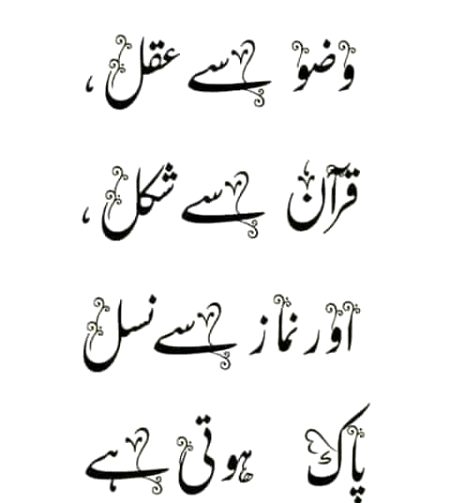 وضو سے عقل،
قرآن سے شکل،
اور نماز سے نسل
پاک ہوتی ہے